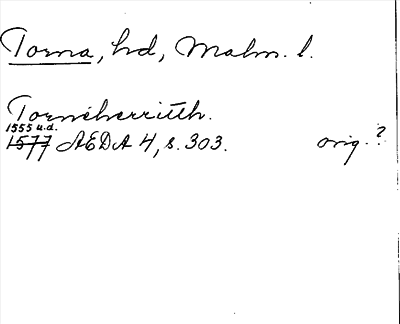 Torna, hd, Malm. l.
Tornéherrith.
1555 u.d.
1577 AEDA 4, s. 303. orig.?